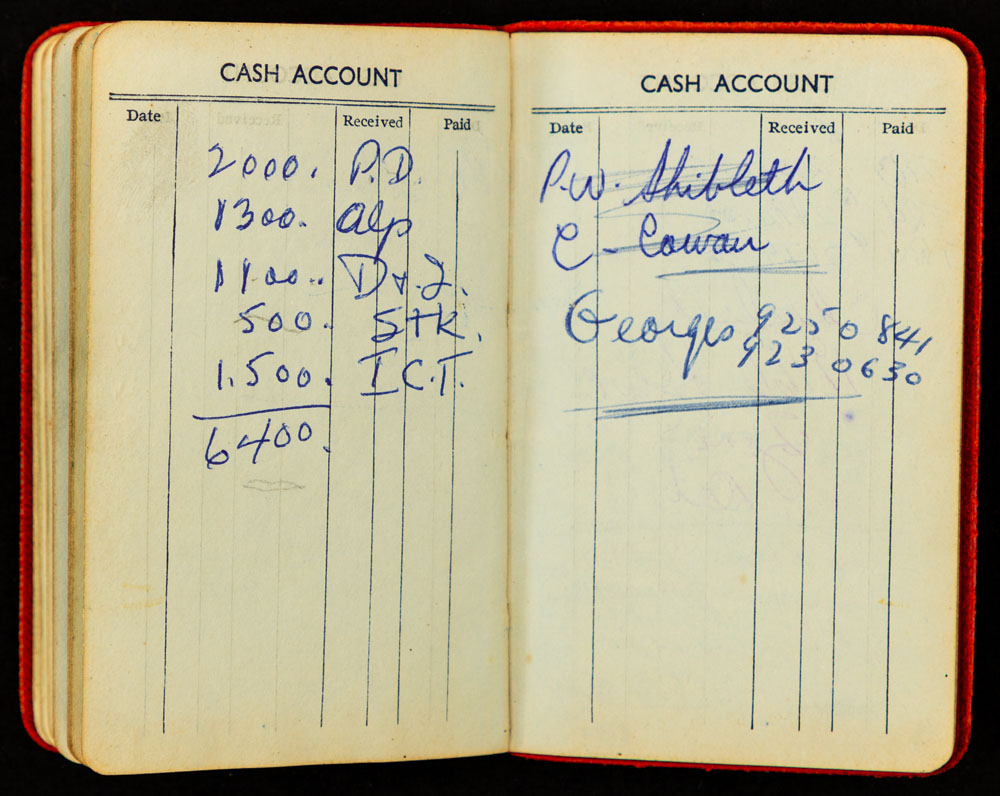 CASH ACCOUNT
Date Received Paid
2000. P.D.
1300. Alp
1100.. D+J.
500. STK.
1.500. I C.T.
6400.
CASH ACCOUNT
Date Received Paid
P.W. Shibleth
C - Cowan
Georges 9250 841
923 0630